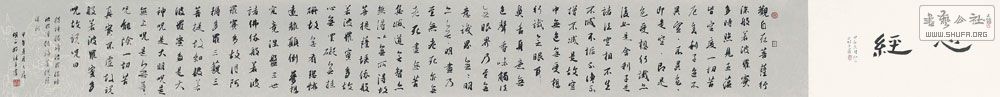 书艺公社
WWW.SHUFA.ORG
心經
觀自在菩薩行
深般若波羅蜜
多時照見五蘊
皆空度一切苦
厄舍利子色不
異空空不異色
色即是空空即是
色受想行識亦
復如是舍利子是
諸法空相不生
不滅不垢不淨不
增不減是故空
中無色無受想
行識無眼耳
鼻舌身意無
色聲香味觸法
無眼界乃至無
意識界無無
明亦無無明盡乃
至無老死亦無
老死盡無苦
集滅道無智亦
無得以無所得故
菩提薩埵依般
若波羅蜜多故
心無罣礙無罣
礙故無有恐怖
遠離顛倒夢想
究竟涅槃三世
諸佛依般若波
羅蜜多故得阿
耨多羅三藐三
菩提故知般若
波羅蜜多是大
神咒是大明
咒是無上咒是無
等等咒
能除一切苦
真實不虛故說
般若波羅蜜多
咒即說咒曰